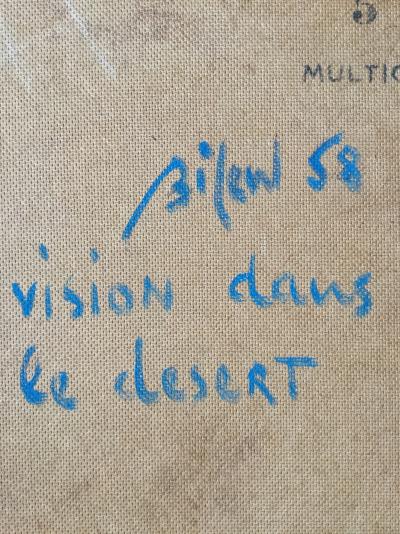 5
MULTIC
Bilew 58
vision dans
le desert